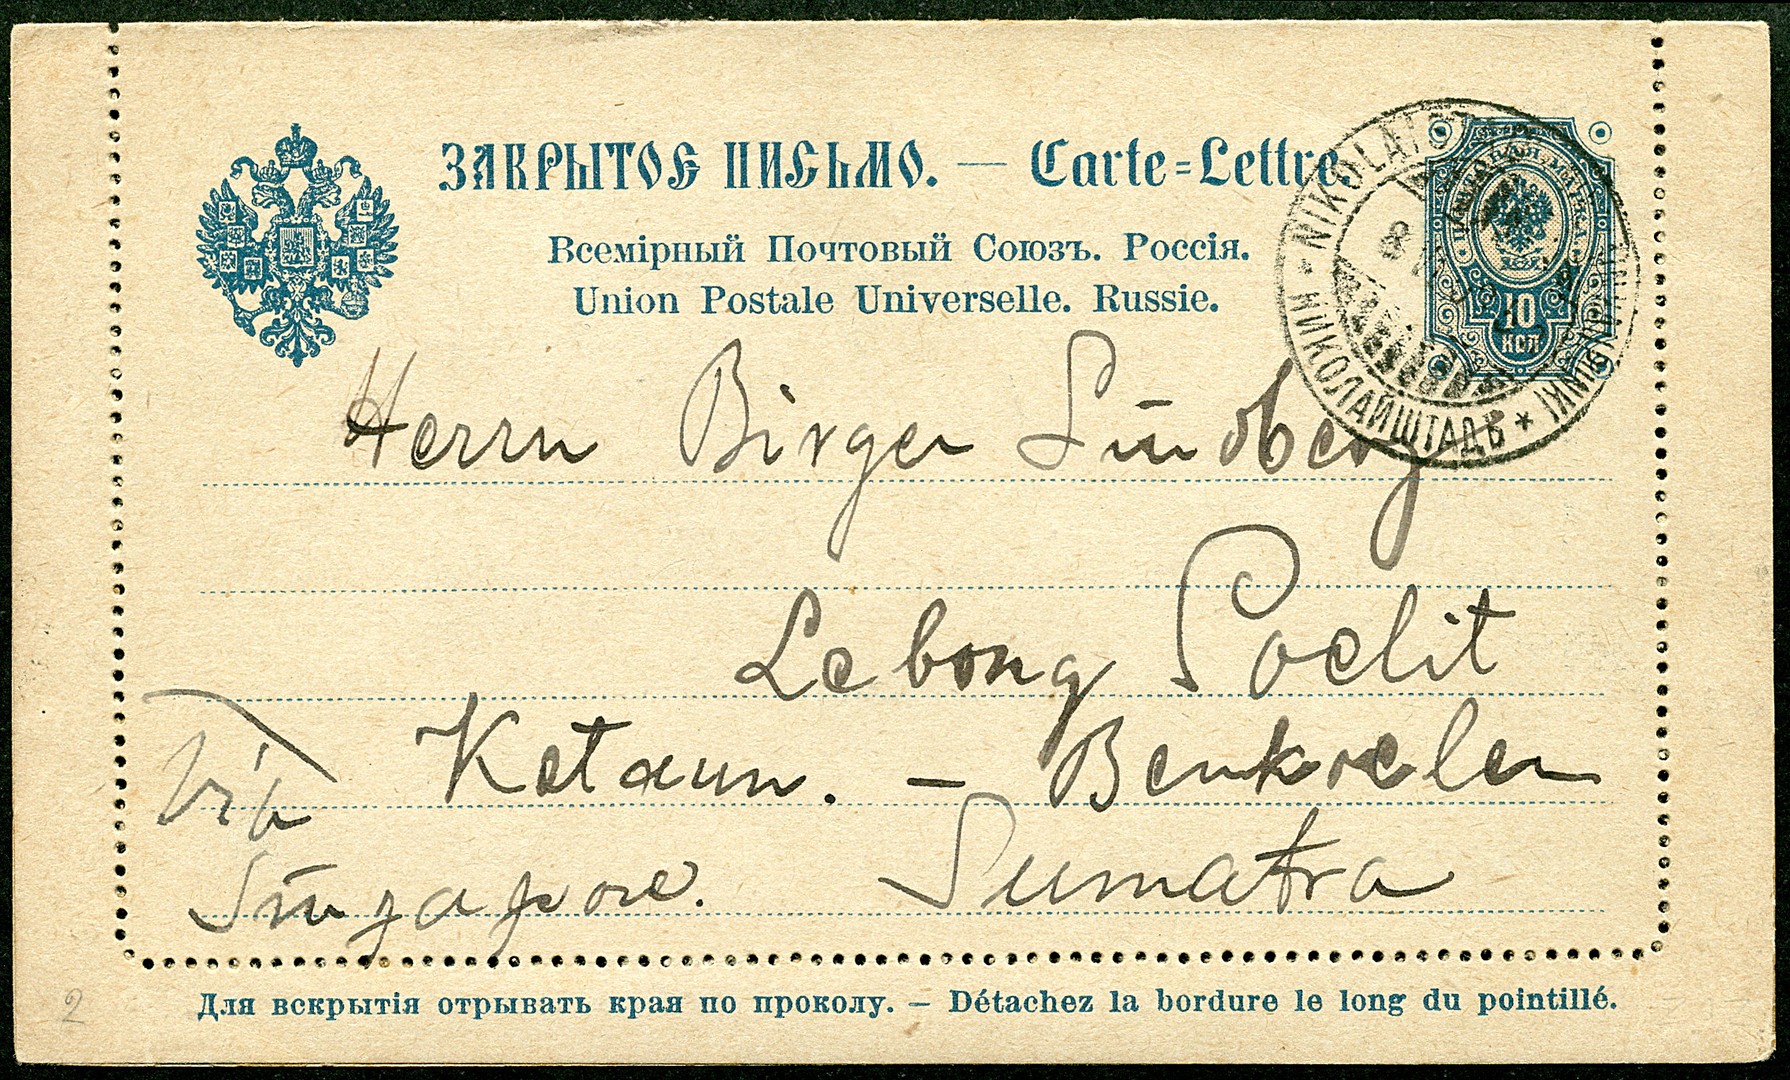 ЗАКРЫТОЕ ПИСЬМО. — Carte=Lettre.
Всемірный Почтовый Союзъ. Россія.
Union Postale Universelle. Russie.
10
КОП
НИКОЛАЙШТАДЪ
Herrn Birger Lindberg
Lebong Soelit
Ketaun. — Benkoelen
Via
Singapore. Sumatra
Для вскрытія отрывать края по проколу. — Détachez la bordure le long du pointillé.
2